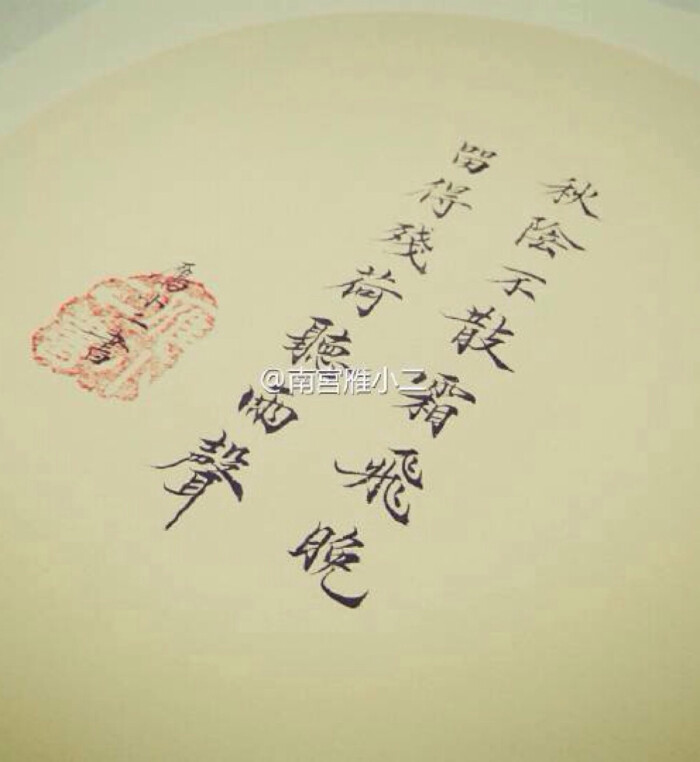 秋陰不散霜飛晚
留得殘荷聽雨聲
小二書
@南宮雁小二